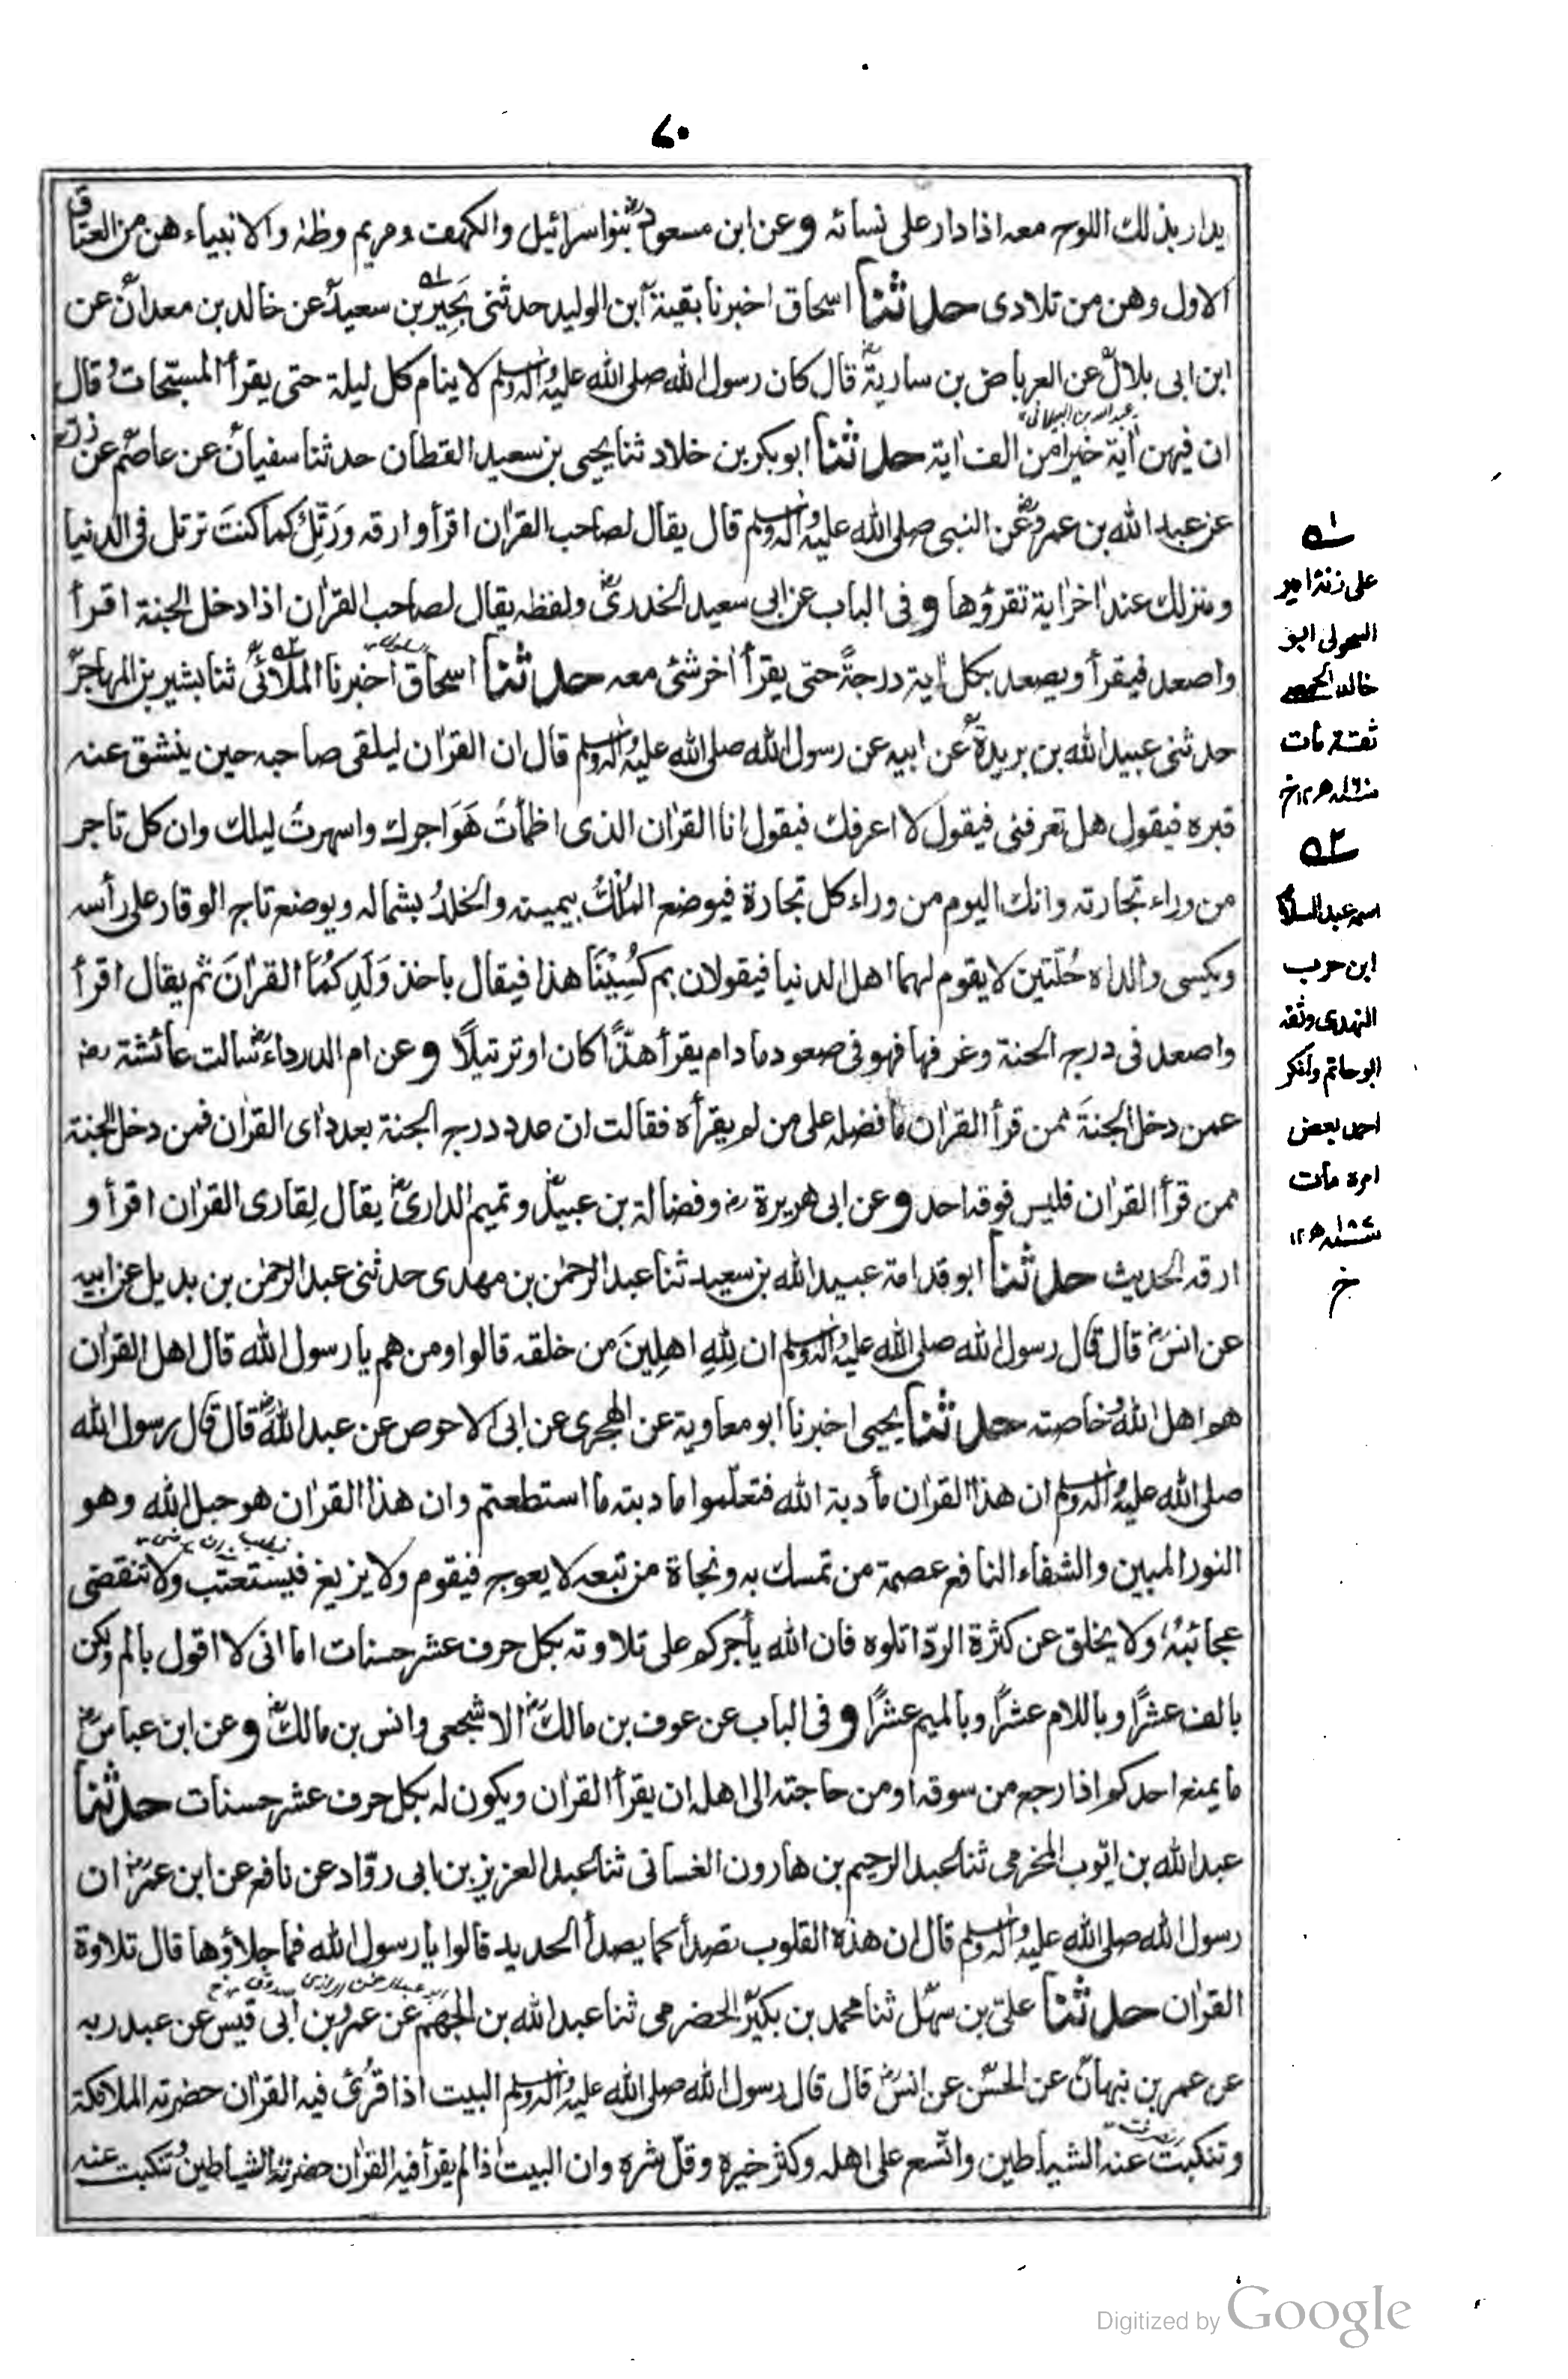 ۷۰
يدار بذلك اللوح معه اذا دار على نسائه وعن ابن مسعود بنواسرائيل والكهف ومريم وطه والانبياء هن من العتاق
الاول وهن من تلادى حدثنا اسحاق اخبرنا بقية ابن الوليد حدثنى بَحِيْر بن سعيد عن خالد بن معدان عن
ابن ابى بلال عن العرباض بن سارية قال كان رسول الله صلى الله عليه وآله وسلم لا ينام كل ليلة حتى يقرأ المسبّحات وقال
ان فيهن اٰية خيرا من الف اٰية حدثنا ابو بكر بن خلاد ثنا يحيى بن سعيد القطان حدثنا سفيان عن عاصم عن زر
عن عبد الله بن عمرو عن النبى صلى الله عليه وآله وسلم قال يقال لصاحب القرٰان اقرأ وارقه ورَتِّلْ كما كنتَ ترتل فى الدنيا
ومنزلك عند اٰخر اٰية تقرؤها وفى الباب عن ابى سعيد الخدرى ولفظه يقال لصاحب القرٰان اذا دخل الجنة اقرأ
واصعد فيقرأ ويصعد بكل اٰية درجةً حتى يقرأ اٰخر شئ معه حدثنا اسحاق اخبرنا الملائى ثنا بشير بن المهاجر
حدثنى عبيد الله بن بريدة عن ابيه عن رسول الله صلى الله عليه وآله وسلم قال ان القرٰان ليلقى صاحبه حين ينشق عنه
قبره فيقول هل تعرفنى فيقول لا اعرفك فيقول انا القرٰان الذى اظمأتُ هَوَاجرك واسهرتُ ليلك وان كل تاجر
من وراء تجارته وانك اليوم من وراء كل تجارة فيوضع المُلْكُ بيمينه والخلدُ بشماله ويوضع تاج الوقار على رأسه
ويكسى والداه حُلّتين لا يقوم لهما اهل الدنيا فيقولان بم كُسِيْنَا هذا فيقال باخذ وَلَدِكُمَا القرٰانَ ثم يقال اقرأ
واصعد فى درج الجنة وغرفها فهو فى صعود ما دام يقرأ هذًّا كان او ترتيلًا وعن ام الدرداء سالت عائشة رض
عمن دخل الجنةَ ممن قرأ القرٰان ما فضله على من لم يقرأه فقالت ان عدد درج الجنة بعدد اٰى القرٰان فمن دخل الجنة
ممن قرأ القرٰان فليس فوقه احد وعن ابى هريرة رض وفضالة بن عبيد وتميم الدارى يقال لِقارى القرٰان اقرأ و
ارقه الحديث حدثنا ابو قدامة عبيد الله بن سعيد ثنا عبد الرحمٰن بن مهدى حدثنى عبد الرحمٰن بن بديل عن ابيه
عن انس قال قال رسول الله صلى الله عليه وآله وسلم ان لِلهِ اهلِينَ من خلقه قالوا ومن هم يا رسول الله قال اهل القرٰان
هم اهل الله وخاصته حدثنا يحيى اخبرنا ابو معاوية عن الهجرى عن ابى الاحوص عن عبد الله قال قال رسول الله
صلى الله عليه وآله وسلم ان هذا القرٰان مأدبة الله فتعلّموا مادبته ما استطعتم وان هذا القرٰان هو حبل الله وهو
النور المبين والشفاء النافع عصمة من تمسك به ونجاة من تبعه لا يعوج فيقوم ولا يزيغ فيستعتب ولا تنقضى
عجائبهٗ ولا يخلق عن كثرة الردّ اتلوه فان الله يأجركم على تلاوته بكل حرف عشر حسنات اما انى لا اقول بالم ولكن
بالف عشرًا وباللام عشرًا وبالميم عشرًا وفى الباب عن عوف بن مالك الاشجعى وانس بن مالك وعن ابن عباس
ما يمنع احدكم اذا رجع من سوقه او من حاجته الى اهله ان يقرأ القرٰان ويكون له بكل حرف عشر حسنات حدثنا
عبد الله بن ايّوب المخرمى ثنا عبد الرحيم بن هارون الغسانى ثنا عبد العزيز بن ابى روّاد عن نافع عن ابن عمر ان
رسول الله صلى الله عليه وآله وسلم قال ان هذه القلوب تصدأ كما يصدأ الحديد قالوا يا رسول الله فما جلاؤها قال تلاوة
القرٰان حدثنا علىّ بن سهل ثنا محمد بن بكير الحضرمى ثنا عبد الله بن الجهم عن عمرو بن ابى قيس عن عبد ربه
عن عمر بن نبهان عن الحسن عن انس قال قال رسول الله صلى الله عليه وآله وسلم البيت اذا قُرِئَ فيه القرٰان حضرته الملائكة
وتنكبت عنه الشياطين واتّسع على اهله وكثر خيره وقلّ شره وان البيت اذا لم يقرأ فيه القرٰان حضرته الشياطين وتنكبت عنه
۱؎
على زنة امير
السحولى ابو
خالد الحمصى
ثقة مات
۱۲
۲؎
اسمه عبد السلام
ابن حرب
النهدى وثقه
ابو حاتم وانكر
احمد بعض
امره مات
سنة ۱۸۷ھ ۱۲
خ
Digitized by Google